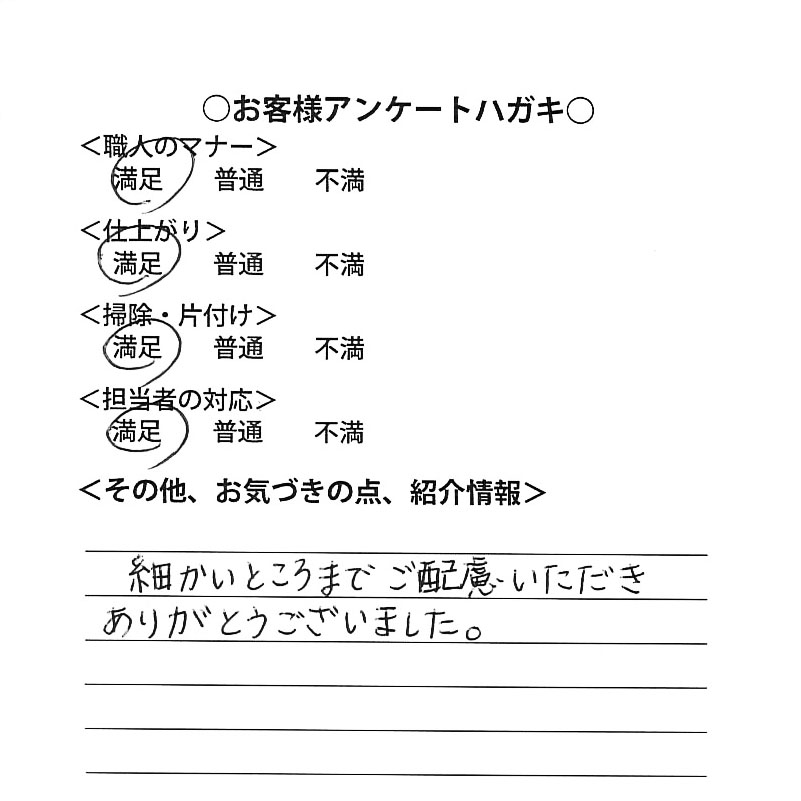 ○お客様アンケートハガキ○
＜職人のマナー＞
満足 普通 不満
＜仕上がり＞
満足 普通 不満
＜掃除・片付け＞
満足 普通 不満
＜担当者の対応＞
満足 普通 不満
＜その他、お気づきの点、紹介情報＞
細かいところまでご配慮いただき
ありがとうございました。